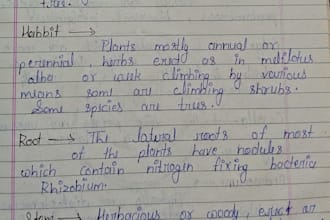 Habbit →
Plants mostly annual or
perennial, herbs erect as in melilotus
also or weak climbing by various
means som are climbing shrubs.
Some spicies are trus.
Root → The latural roots of most
of the plants have nodules
which contain nitrogen fixing bacteria
Rhizobium.
Stem → Herbacious or woody, erect or